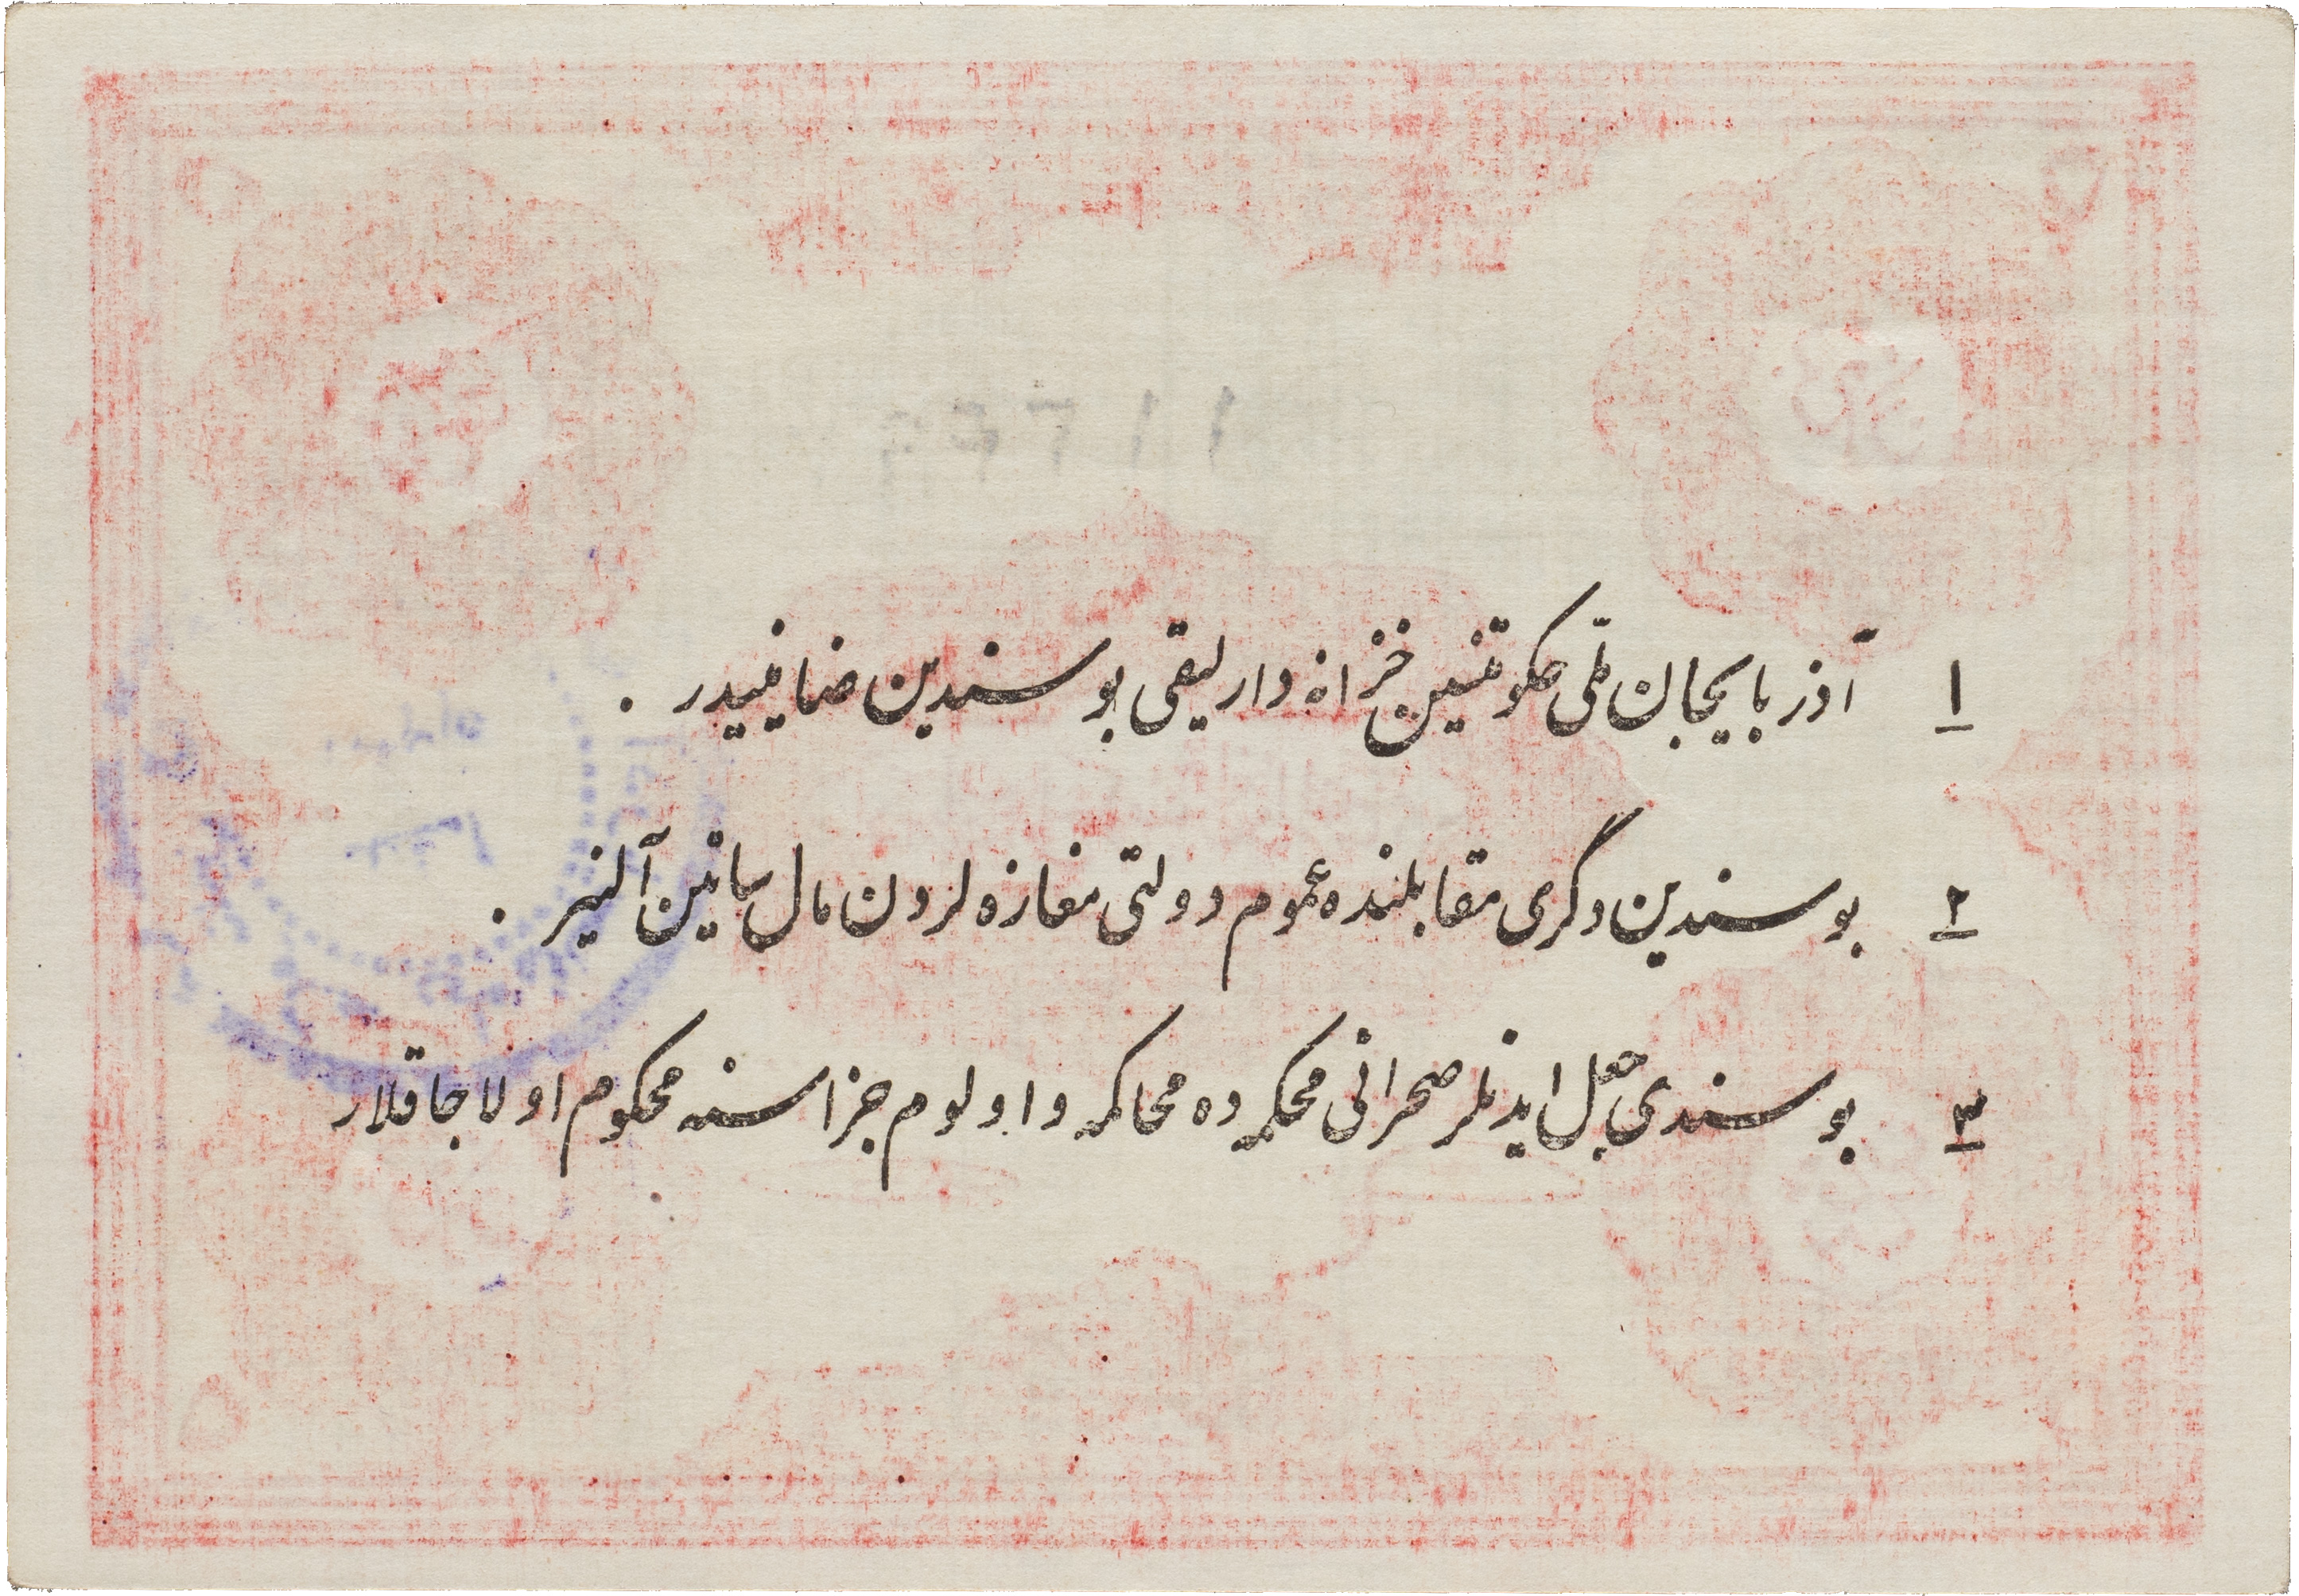 ۱ آذربایجان ملّی حکومتنین خزانه دارلیقی بو سندین ضامنیدر .
۲ بو سندین دگری مقابلنده عموم دولتی مغازه لردن مال ساتین آلنیر .
۳ بو سندی جعل ایدنلر صحرائی محکمه ده محاکمه و اولوم جزاسنه محکوم اولاجاقلار